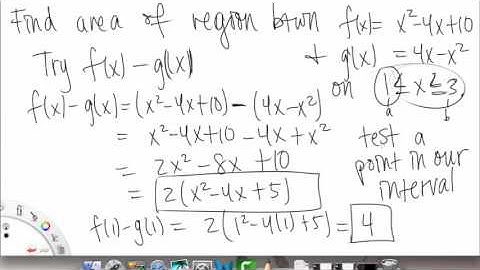 Find area of region btwn f(x)= x²-4x+10
Try f(x)-g(x) & g(x) = 4x-x²
on 1≤x≤3
a b
f(x)-g(x)=(x²-4x+10)-(4x-x²)
= x²-4x+10-4x+x²
= 2x²-8x+10
= 2(x²-4x+5)
test a
point in our
interval
f(1)-g(1)= 2(1²-4(1)+5)= 4